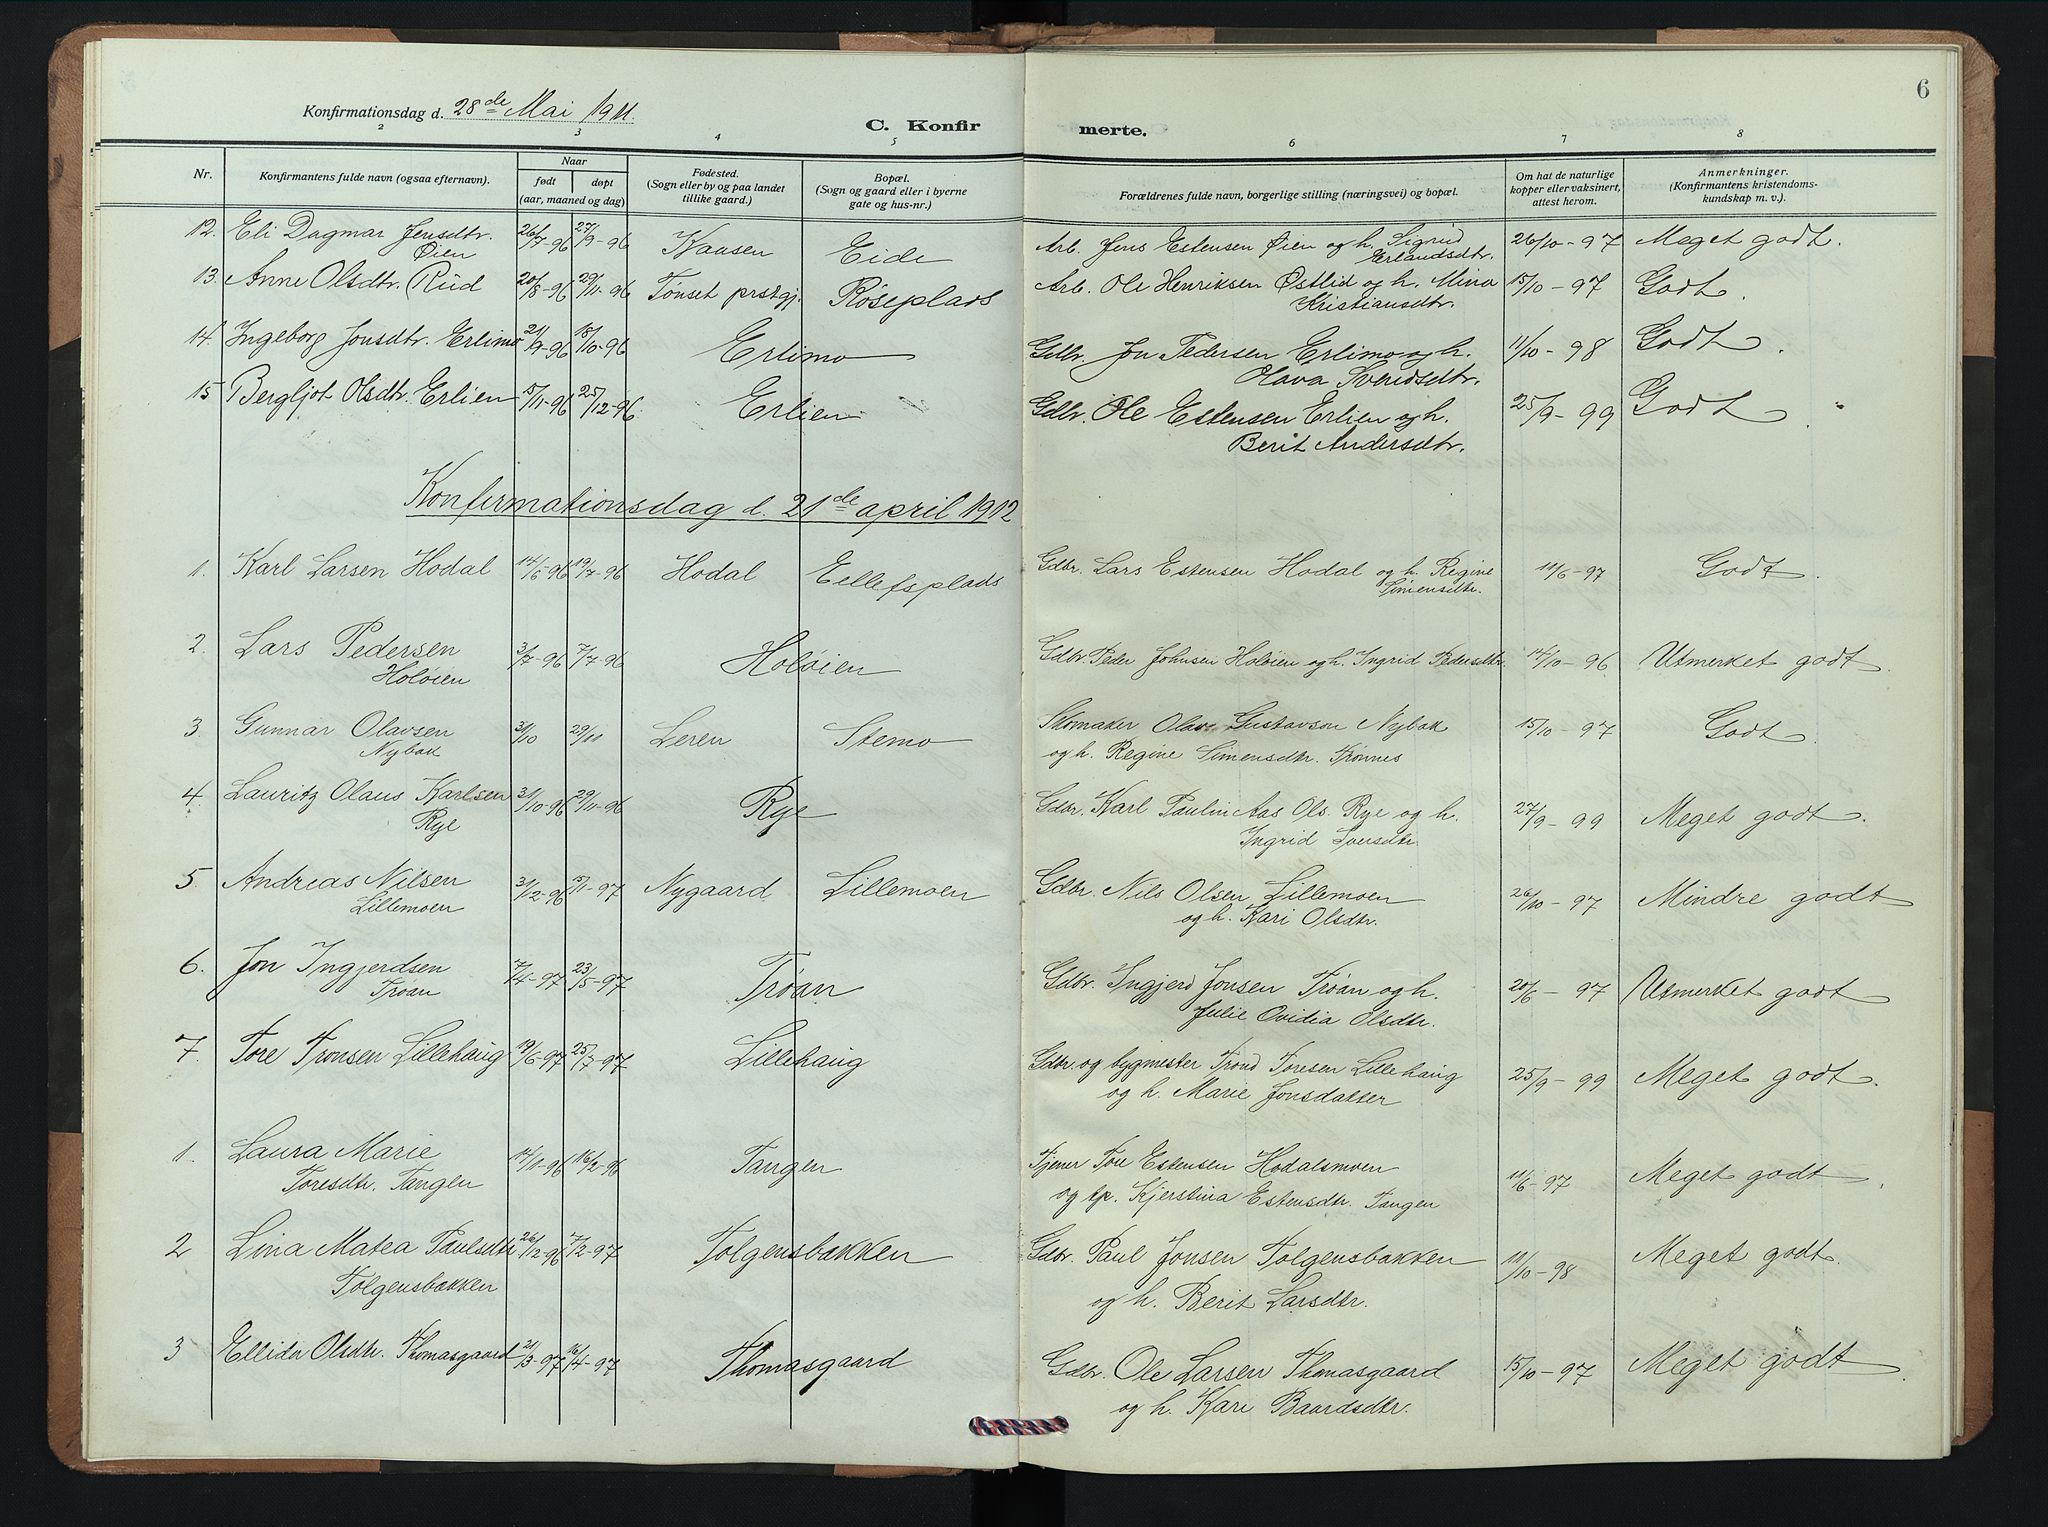 6
Konfirmationsdag d. 28de Mai 1911.
C. Konfirmerte.
2 3 4 5 6 7 8
Nr.
Konfirmantens fulde navn (ogsaa efternavn).
Naar
født døpt
(aar, maaned og dag)
Fødested.
(Sogn eller by og paa landet
tillike gaard.)
Bopæl.
(Sogn og gaard eller i byerne
gate og hus-nr.)
Forældrenes fulde navn, borgerlige stilling (næringsvei) og bopæl.
Om hat de naturlige
kopper eller vaksinert,
attest herom.
Anmerkninger.
(Konfirmantens kristendoms-
kundskap m. v.)
12. Eli Dagmar Jensdtr. 26/7-96 27/9-96 Kaasen Eide Arb. Jens Estensen Øien og h. Sigrid 26/10-97 Meget godt.
Øien Erlandsdtr.
13. Anne Olsdtr. Rud 20/8-96 29/11-96 Tønset prstgj. Røseplads Arb. Ole Henriksen Østlid og h. Mina 15/10-97 Godt.
Kristiansdtr.
14. Ingeborg Jonsdtr. Erlimo 21/9-96 18/10-96 Erlimo Gdbr. Jon Pedersen Erlimo og h. 11/10-98 Godt.
Olava Svendsdtr.
15 Bergljot Olsdtr. Erlien 5/11-96 25/12-96 Erlien Gdbr. Ole Estensen Erlien og h. 25/9-99 Godt.
Berit Andersdtr.
Konfirmationsdag d. 21de april 1912
1. Karl Larsen Hodal 14/6-96 19/7-96 Hodal Eellefsplads Gdbr. Lars Estensen Hodal og h. Regine 11/6-97 Godt.
Simensdtr.
2. Lars Pedersen 3/7-96 7/7-96 Holøien Gdbr Peder Johnsen Holøien og h. Ingrid Pedersdtr. 14/10-96 Utmerket godt.
Holøien
3. Gunnar Olavsen 3/10 29/11 Leren Stemo Skomaker Olav Gustavson Nybak 15/10-97 Godt.
Nybak og h. Regine Simensdtr. Trønnes
4. Lauritz Olaus Karlsen 31/10-96 29/11-96 Rye Gdbr. Karl Paulin Aas Ols. Rye og h. 27/9-99 Meget godt.
Rye Ingrid Iversdtr.
5 Andreas Nilsen 31/12-96 5/1-97 Nygaard Lillemoen Gdbr. Nils Olsen Lillemoen 26/10-97 Mindre godt
Lillemoen og h. Kari Olsdtr.
6. Jon Ingjerdsen 7/4-97 23/5-97 Trøan Gdbr. Ingjerd Jonsen Trøan og h. 20/6-97 Utmerket godt
Trøan Julie Ovidia Olsdtr.
7. Tore Tronsen Lillehaug 19/6-97 25/7-97 Lillehaug Gdbr. og bygmester Trond Toresen Lillehaug 25/9-99 Meget godt.
og h. Marie Jonsdatter
1. Laura Marie 14/1-96 16/2-96 Tangen Tjener Tore Estensen Hodalsmoen 11/6-97 Meget godt.
Toresdtr. Tangen og tp. Kjerstina Estensdtr. Tangen
2 Lina Matea Paulsdtr 26/12-96 7/2-97 Tolgensbakken Gdbr. Paul Jonsen Tolgensbakken 11/10-98 Meget godt.
Tolgensbakken og h. Berit Larsdtr.
3 Ellida Olsdtr. Thomasgaard 21/3-97 16/4-97 Thomasgaard Gdbr. Ole Larsen Thomasgaard 15/10-97 Meget godt.
og h. Kari Baardsdtr.